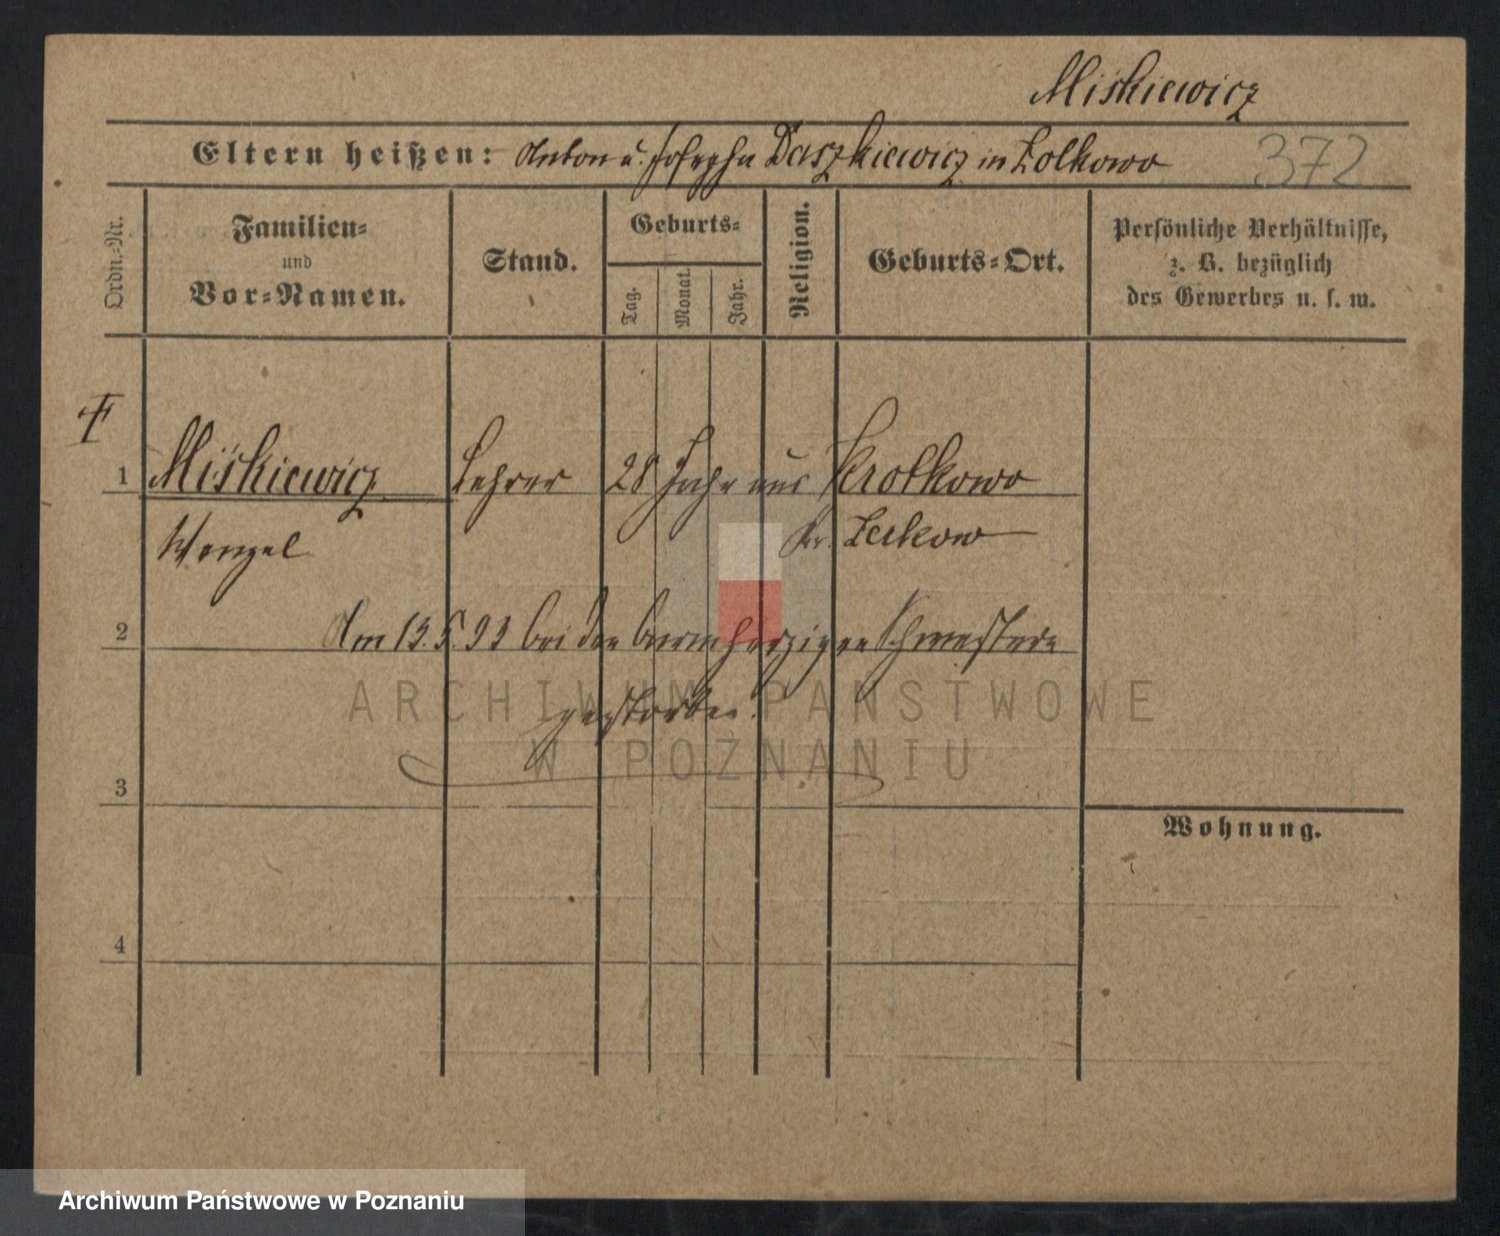 Miśkiewicz
Eltern heißen: Anton u. Josepha Daszkiewicz in Zolkowo 372
Ordn.-Nr.
Familien-
und
Vor-Namen.
Stand.
Geburts-
Tag.
Monat.
Jahr.
Religion.
Geburts-Ort.
Persönliche Verhältnisse,
z. B. bezüglich
des Gewerbes u. s. w.
1 Miśkiewicz Lehrer 28 Jahr aus Krotkowo
Wenzel Kr.
2 Am 13.5.93 bei den barmherzigen Schwestern
gestorben.
3
Wohnung.
4
ARCHIWUM PAŃSTWOWE
W POZNANIU
Archiwum Państwowe w Poznaniu